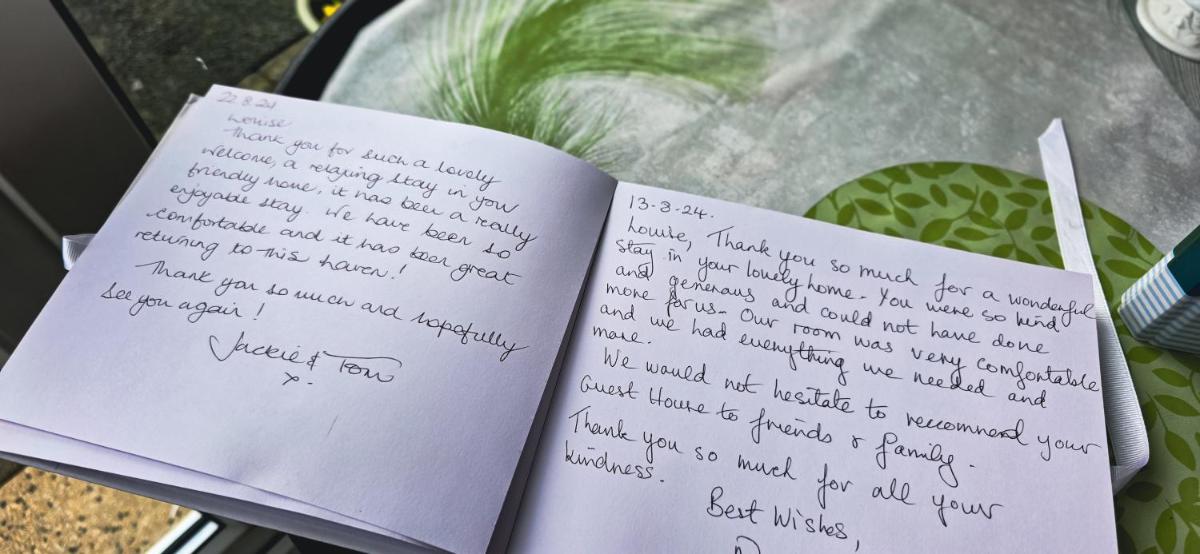 22.8.24
Louise
Thank you for such a lovely
welcome, a relaxing stay in your
friendly home, it has been a really
enjoyable stay. We have been so
comfortable and it has been great
returning to this haven!
Thank you so much and hopefully
see you again!
Jackie & Tom
x.
13-8-24.
Louise, Thank you so much for a wonderful
stay in your lovely home. You were so kind
and generous and could not have done
more for us. Our room was very comfortable
and we had everything we needed and
more.
We would not hesitate to recommend your
Guest House to friends & family.
Thank you so much for all your
kindness.
Best Wishes,